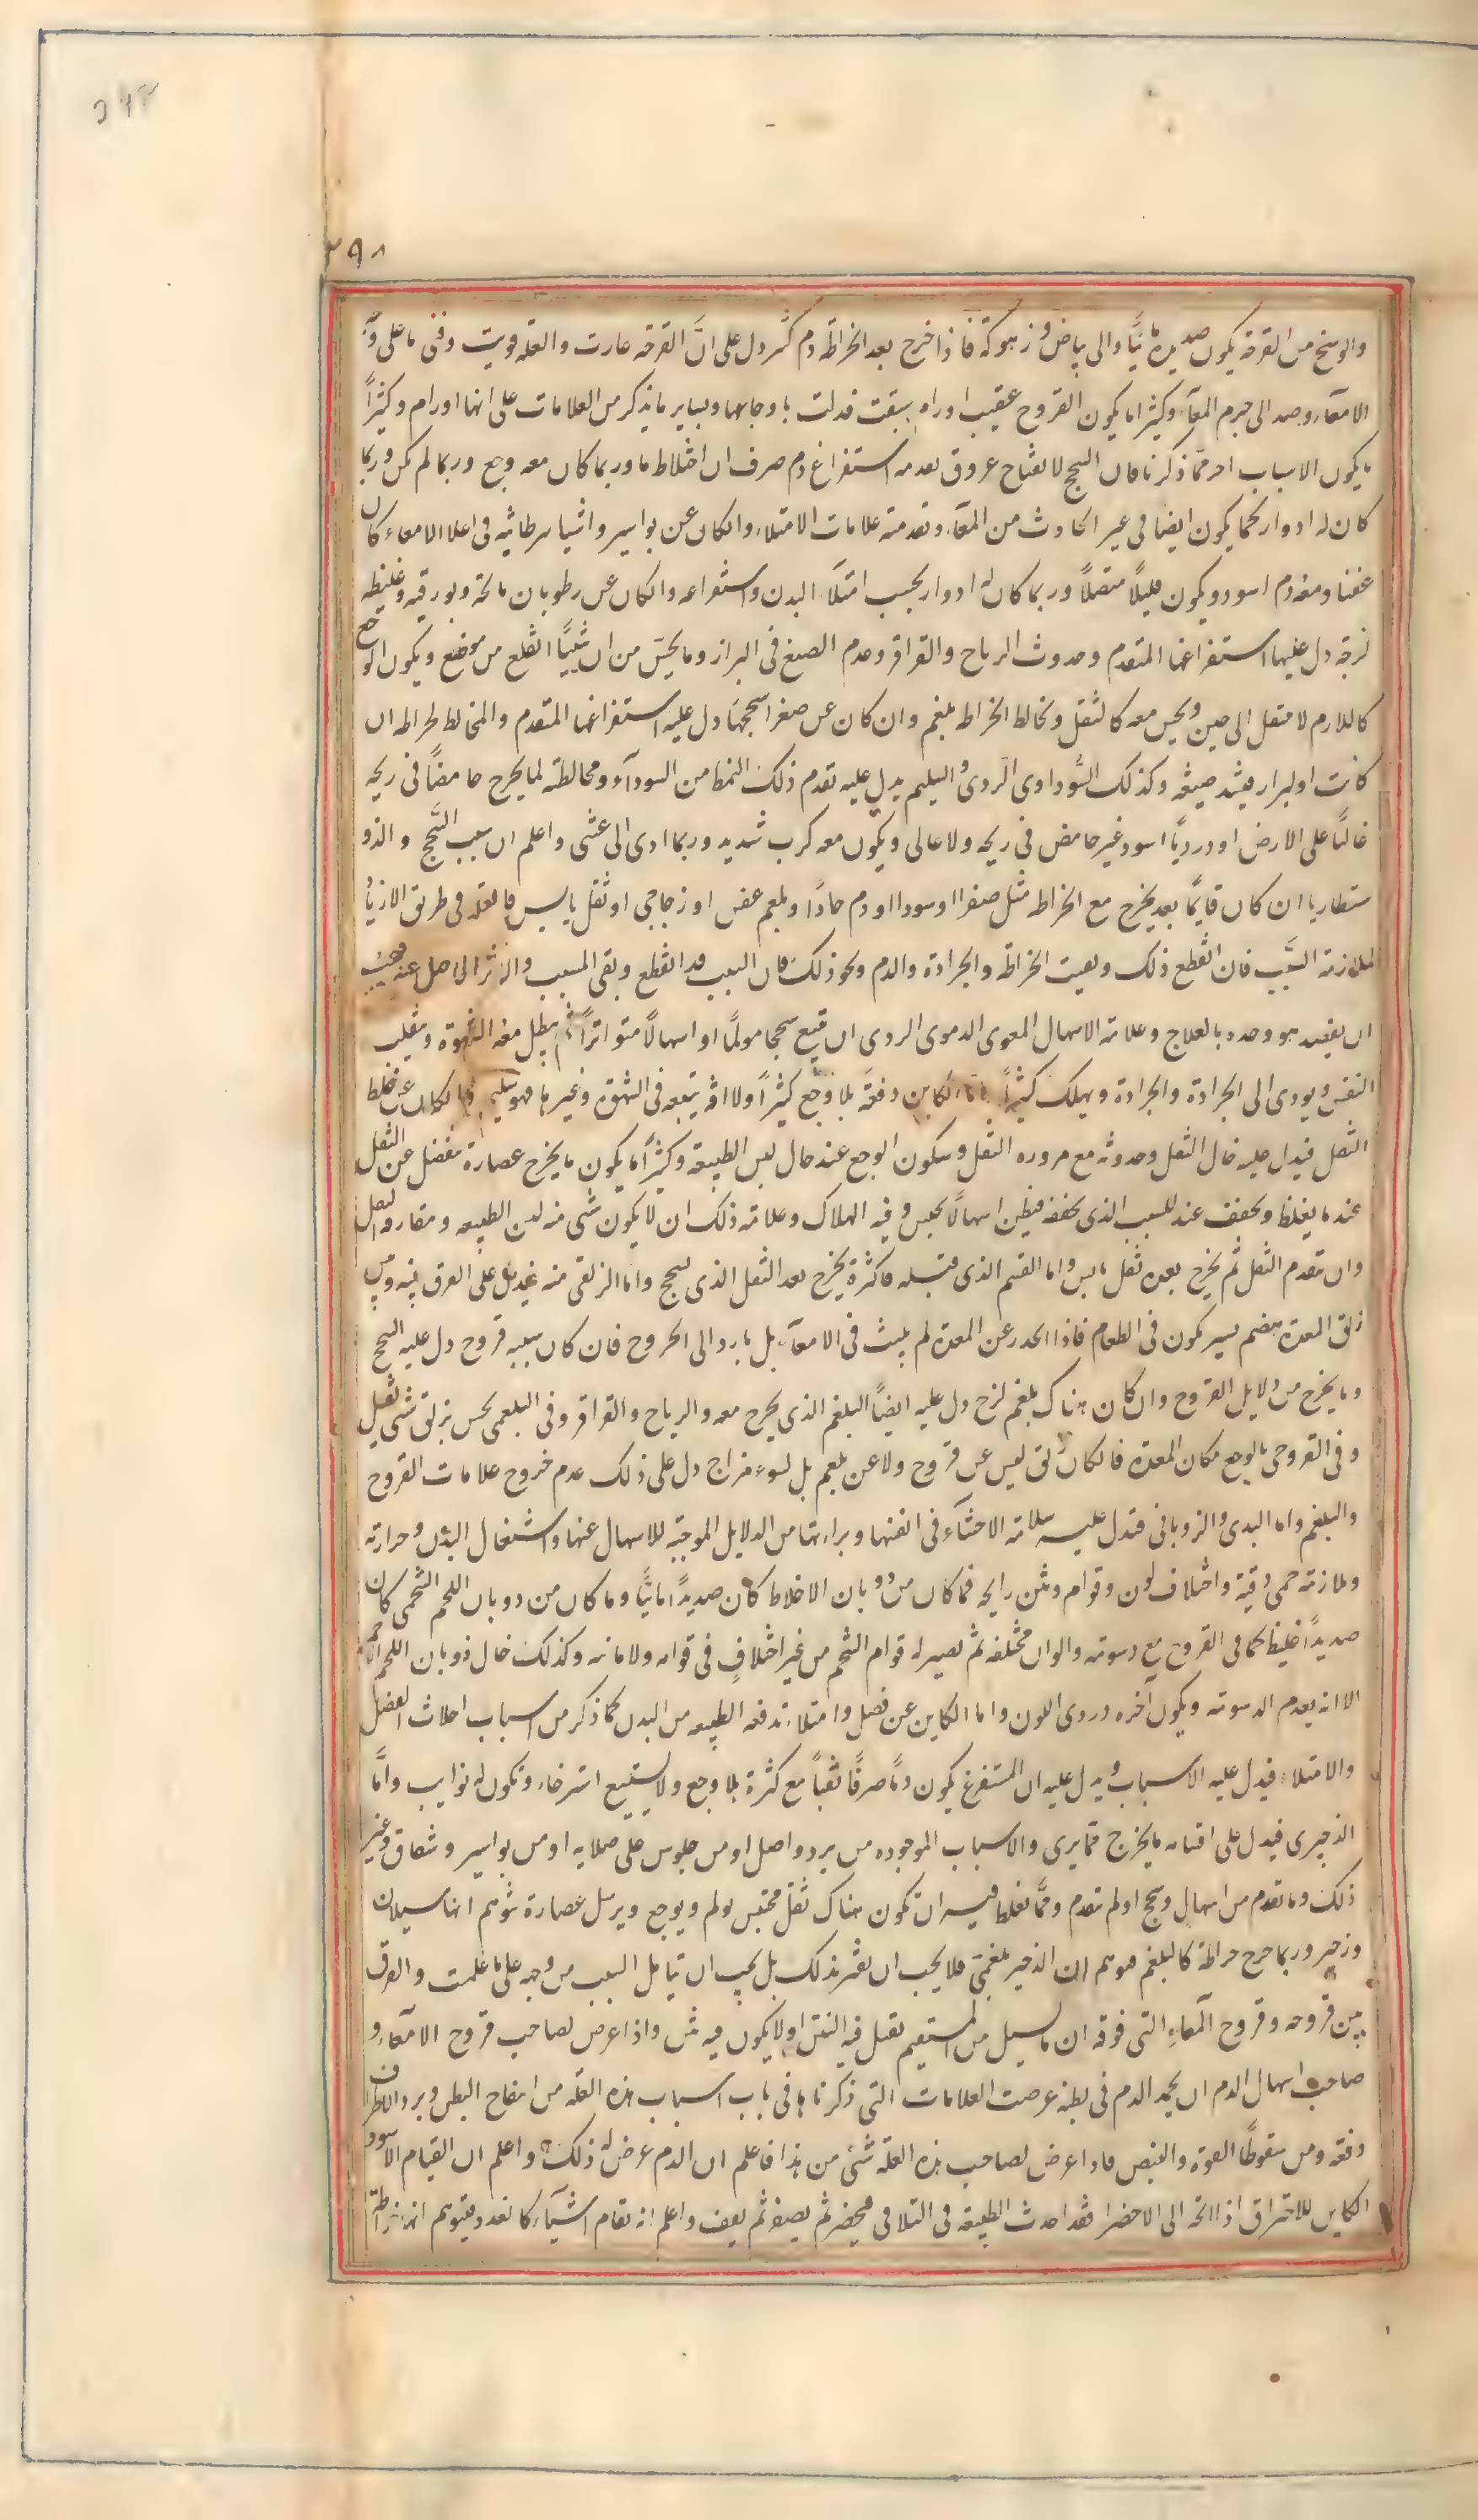 ٢٩٨
والوسخ من القرحة يكون صديديا مائيًا والى بياض وزهوكة فاذا خرج بعد الخراطة دم كثير دل على انَّ القرحة غارت والعلة قويت وفنى ما على وجه
الامعآء وصد الى جرم المعآء وكثيرا ما يكون القروح عقيب اورام سبقت فدلت باوجاعها وبساير ما يذكر من العلامات على انها اورام وكثيرًا
ما يكون الاسباب اخر ممّا ذكرنا فان السحج لانفتاح عروق تعدمه استفراغ دم صرف ان اختلاط ما وربما كان معه وجع وربما لم يكن وربما
كان له ادوار كما يكون ايضا فى غير الحادث من المعآء وتقدمته علامات الامتلاء والكان عن بواسير واشياء سرطانيه فى اعلا الامعاء كان
عفنا ومعه دم اسود ويكون قليلاً متصلاً وربما كان له ادوار بحسب امتلآء البدن واستفراغه والكان عن رطوبات مالحة وبورقيه وغليظه
لزجة دل عليها استفراغها المتقدم وحدوث الرياح والقراقر وعدم الصبغ فى البراز وما يحسّ من ان شيئًا انقلع من موضع ويكون الوجع
كاللازم لا منتقل الى حين ويحس معه كالثقل وتخالط الخراطه بلغم وان كان عن صفرا سحجها دل عليه استفراغها المتقدم والمخالط لخراطه ان
كانت او لبراز مشتد صبغه وكذلك السَّوداوى الردى والسليم يدل عليه تقدم ذلك النمط من السودآء ومخالطته لما يخرج حامضًا فى ريحه
غاليًا على الارض او درديًا اسود غير حامض فى ريحه ولا غالى ويكون معه كرب شديد وربما ادى الى غشى واعلم ان سبب السَّحج والذو
سنطاريا ان كان قايمًا بعد يخرج مع الخراطه مثل صفرا او سودا او دم حادًا وبلغم عفن او زجاجى او ثفل يابس فالعله فى طريق الازدياد
لملازمة السَّبب فان انقطع ذلك وبقيت الخراطة والجرادة والدم ونحو ذلك فان السبب قد انقطع وبقى المسبب والاثر الحاصل عنه فيجب
ان يقصد هو وحده بالعلاج وعلامة الاسهال المعوى الدموى الردى ان يتبع سحجا مولمًا او اسهالاً متواترًا ثم يبطل معه الشهوة ويقلب
النفس ويودى الى الجرادة والجرادة ويهلك كثيرًا الكاين دفعة بلا وجع كثيرًا ولا افه يتبعه فى الشهوة وغيرها فهو سليم والكان عن غلظ
الثفل فيدل عليه حال الثفل وحدوثه مع مروره الثفل وسكون الوجع عند حال لين الطبيعه وكثيرًا ما يكون ما يخرج عصارة تنفصل عن الثفل
عند ما يغلظ ويجفف عند للسبب الذى يجففه فيظن اسهالاً يحبس وفيه الهلاك وعلامة ذلك ان لا يكون شى منه لين الطبيعه ومفارقه الثفل
وان تقدم الثفل ثم يخرج بعده ثفل يابس واما القسم الذى قبله فاكثره يخرج بعد الثفل الذى يسحج واما الزلقى منه فيدل على الفرق بينه وبين
زلق المعدة هضم يسير يكون فى الطعام فاذا انحدر عن المعدة لم يلبث فى الامعآء بل بارد الى الخروج فان كان سببه قروح دل عليه السحج
وما يخرج من دلايل القروح وان كان هناك بلغم لزج دل عليه ايضًا البلغم الذى يخرج معه والرياح والقراقر وفى البلغمى يحس بزلق شى ثقيل
وفى القروحى بالوجع مكان المعدة فالكان زلق ليس عن قروح ولا عن بلغم بل لسوء مزاج دل على ذلك عدم خروج علامات القروح
والبلغم واما البدنى والذوبانى فتدل عليه سلامة الاحشآء فى انفسها وبراءتها من الدلايل الموجبة للاسهال عنها واشتعال البدن وحرارته
وملازمة حمى دقية واختلاف لون وقوام ونتن رايحه فما كان من ذوبان الاخلاط كان صديدًا مائيًا وما كان من ذوبان اللحم الشحمى كان
صديدًا غليظا كما فى القروح مع دسومه والوان مختلفه ثم يصير له قوام الشحم من غير اختلاف فى قوامه ولا مائه وكذلك حال ذوبان اللحم الاحمر
الا انه يعدم الدسومه ويكون آخره دردى اللون واما الكاين عن فضل وامتلاء تدفعه الطبيعه من البدن كما ذكر من اسباب احداث الفضل
والامتلاء فيدل عليه الاسباب ويدل عليه ان المستفرغ يكون دمًا صرفًا نقيًا مع كثرة بلا وجع ولا يستتبع استرخاء وتكون له نوايب وامَّا
الزحيرى فيدل على اقسامه ما يخرج ممّا يرى والاسباب الموجوده من برد واصل او من جلوس على صلابه او من بواسير وشقاق وغير
ذلك وما تقدم من اسهال وسحج او لم تقدم وممَّا يغلط فيه ان تكون هناك ثفل محتبس يولم ويوجع ويرسل عصارة توهم انها سيلان
وزحير وربما خرج خراطة كالبلغم فيوهم ان الزحير بلغمى فلا يجب ان يغتر بذلك بل يجب ان يتامل السبب من وجه على ما علمت والفرق
بين قروحه وقروح المعآء التى فوقه ان ما يسيل من المستقيم يقل فيه النتن او لا يكون فيه نتن واذا عرض لصاحب قروح الامعآء و
صاحب اسهال الدم ان يجمد الدم فى بطنه عرضت العلامات التى ذكرناها فى باب اسباب هذه العله من انتفاخ البطن وبرد الاطراف
دفعه ومن سقوط القوة والنبض فاذا عرض لصاحب هذه العله شئ من هذا فاعلم ان الدم عرض له ذلك واعلم ان القيام الاسود
الكاين للاحتراق اذا اتجه الى الاخضر فقد احدث الطبيعه فى التلافى فيخضر ثم يصفر ثم يقف واعلم انه تقام اشيآء كالغدد فيتوهم انه خراطه